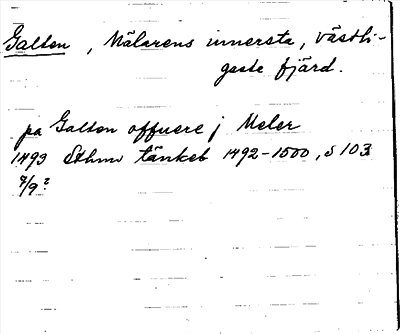 Galten, Mälarens innersta, västli-
gaste fjärd.
pa Galten offuere j Meler
1493 Sthms tänkeb 1492-1500, s 103
4/9?